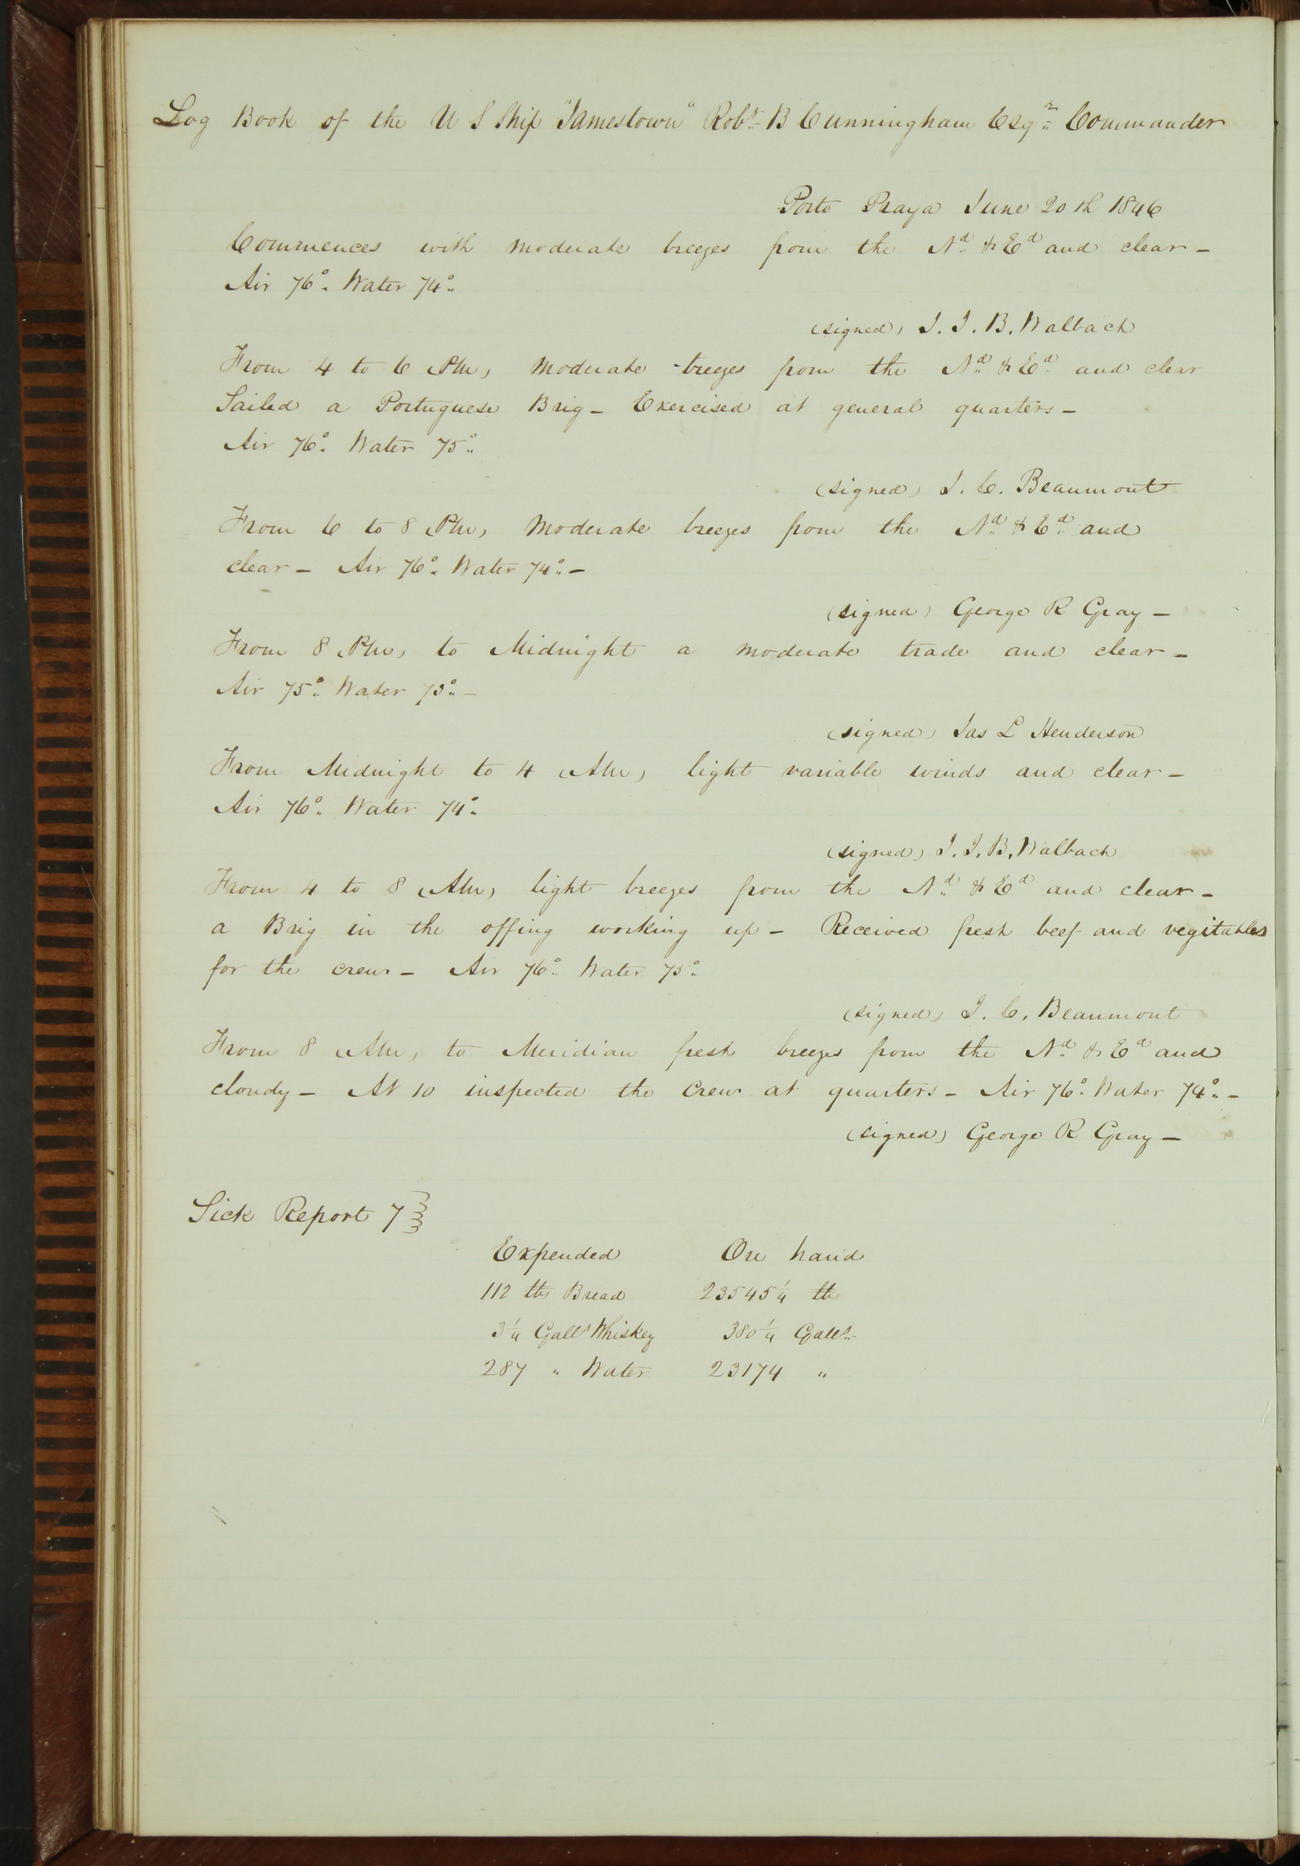 Log Book of the U S Ship "Jamestown" Robt. B Cunningham Esqr. Commander
Porto Praya June 20th 1846
Commences with moderate breezes from the Nd. & Ed and clear –
Air 76°. Water 74°.
(signed) J. J. B. Walbach
From 4 to 6 PM, moderate breezes from the Nd. & Ed. and clear
Sailed a Portuguese Brig – Exercised at general quarters –
Air 76°. Water 75°.
(signed) J. C. Beaumont
From 6 to 8 PM, Moderate breezes from the Nd. & Ed. and
clear – Air 76°. Water 74°. –
(signed) George R Gray –
From 8 PM, to Midnight a moderate trade and clear –
Air 75°. Water 73°. –
(signed) Jas L Henderson
From Midnight to 4 AM, light variable winds and clear –
Air 76°. Water 74°.
(signed) J. J. B. Walbach
From 4 to 8 AM, light breezes from the Nd. & Ed and clear –
a Brig in the offing working up – Received fresh beef and vegitables
for the crew – Air 76°. Water 75°.
(signed) J. C. Beaumont
From 8 AM, to Meridian fresh breezes from the Nd. & Ed and
cloudy – At 10 inspected the Crew at quarters – Air 76°. Water 74°. –
(signed) George R Gray –
Sick Report 7
Expended On hand
112 lbs Bread 23545 1/4 lb
3 1/4 Galls Whiskey 380 1/4 Galls.
287 " Water 23174 "